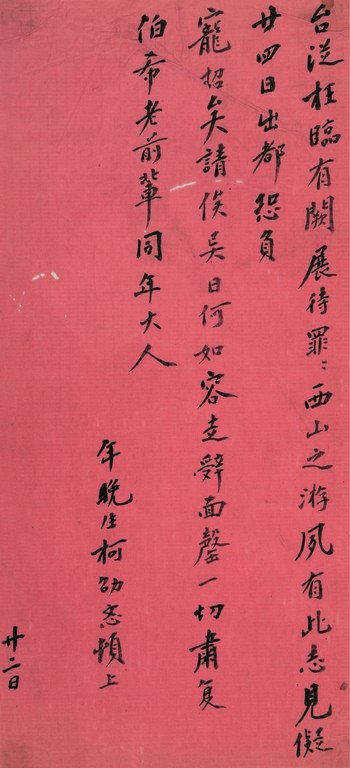 台從枉臨有闕展待罪〻西山之游夙有此志見儗
廿四日出都怨負
寵招矣請俟吴日何如容走辭面罄一切肅复
伯希老前輩同年大人
年晚生柯劭忞頓上
廿二日